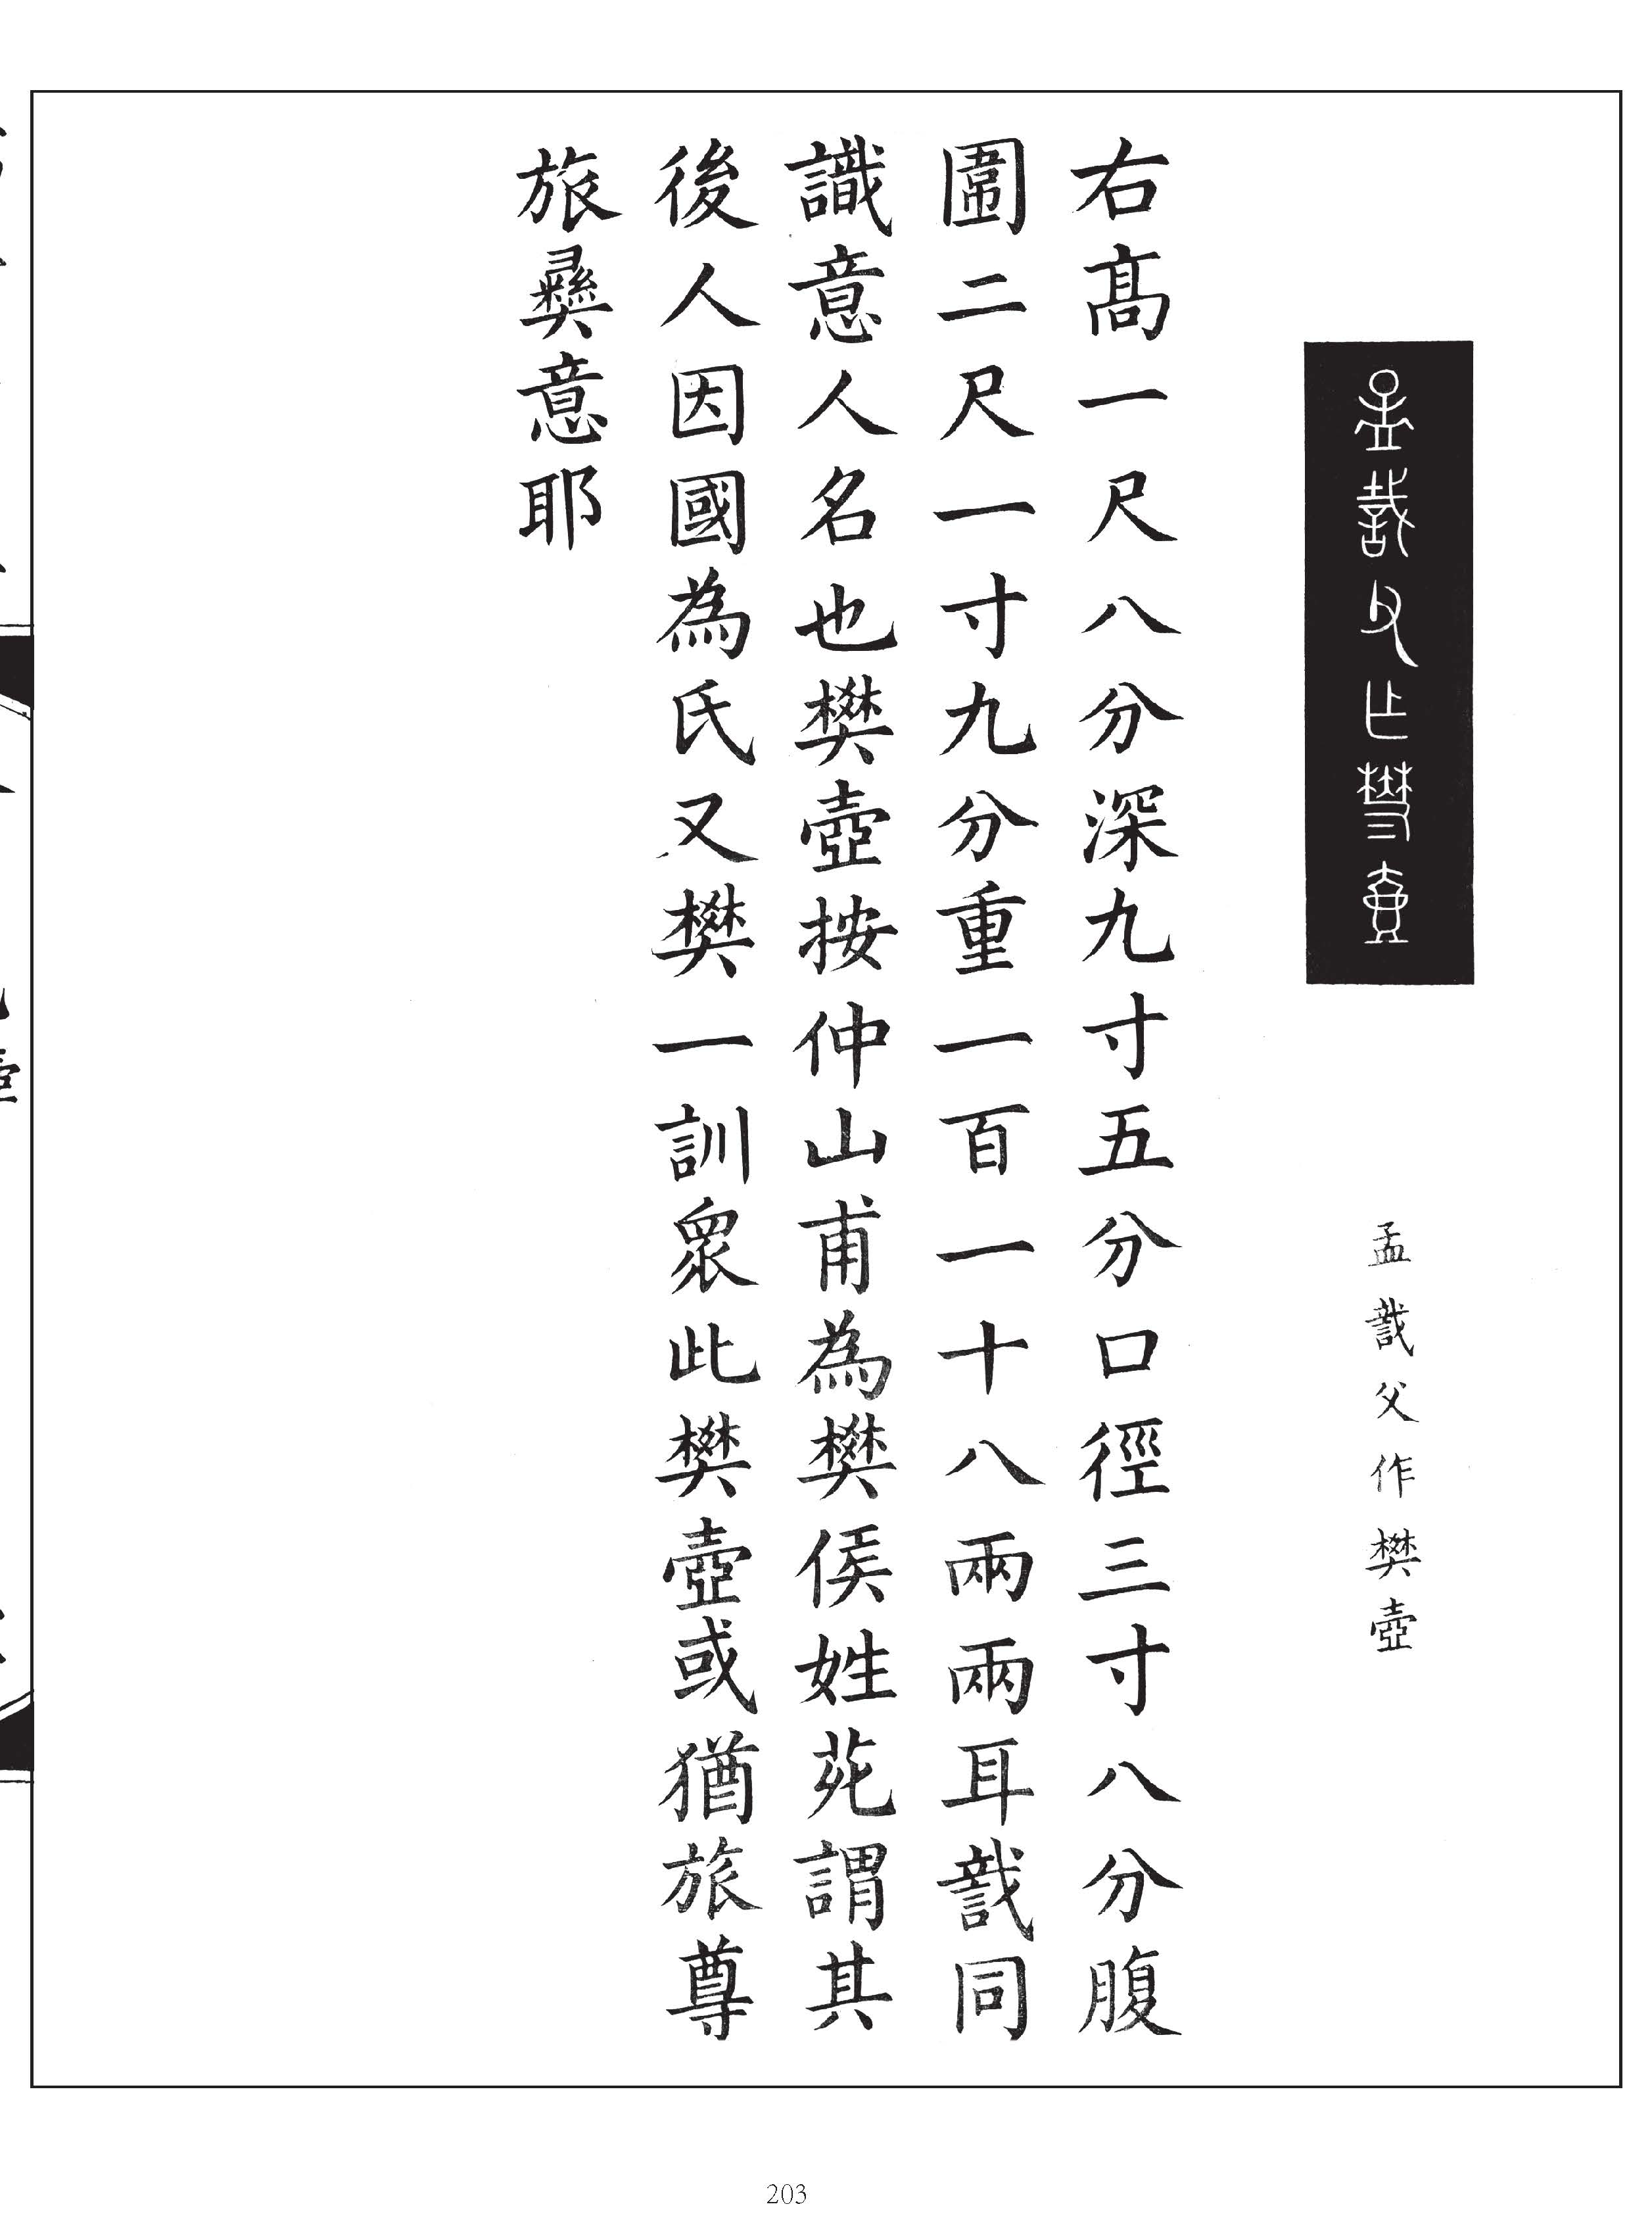 孟戠父作樊壺
孟戠父作樊壺
右高一尺八分深九寸五分口徑三寸八分腹
圍二尺一寸九分重一百一十八兩兩耳戠同
識意人名也樊壺按仲山甫為樊侯姓苑謂其
後人因國為氏又樊一訓眾此樊壺或猶旅尊
旅彞意耶
203